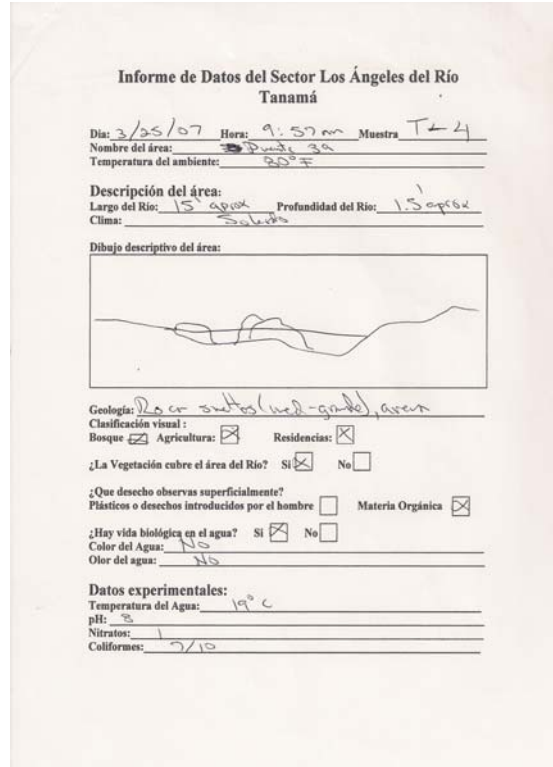 Informe de Datos del Sector Los Ángeles del Río
Tanamá
Dia: 3/25/07 Hora: 9:57 am Muestra T-4
Nombre del área: Puente 39
Temperatura del ambiente: 80°F
Descripción del área:
Largo del Río: 15' aprox Profundidad del Río: 1.5' aprox
Clima: Soleado
Dibujo descriptivo del área:
Geología: Rocas sueltas (med-grande), arena
Clasificación visual :
Bosque Agricultura: Residencias:
¿La Vegetación cubre el área del Río? Si No
¿Que desecho observas superficialmente?
Plásticos o desechos introducidos por el hombre Materia Orgánica
¿Hay vida biológica en el agua? Si No
Color del Agua: No
Olor del agua: No
Datos experimentales:
Temperatura del Agua: 19° C
pH: 8
Nitratos: 1
Coliformes: 7/10